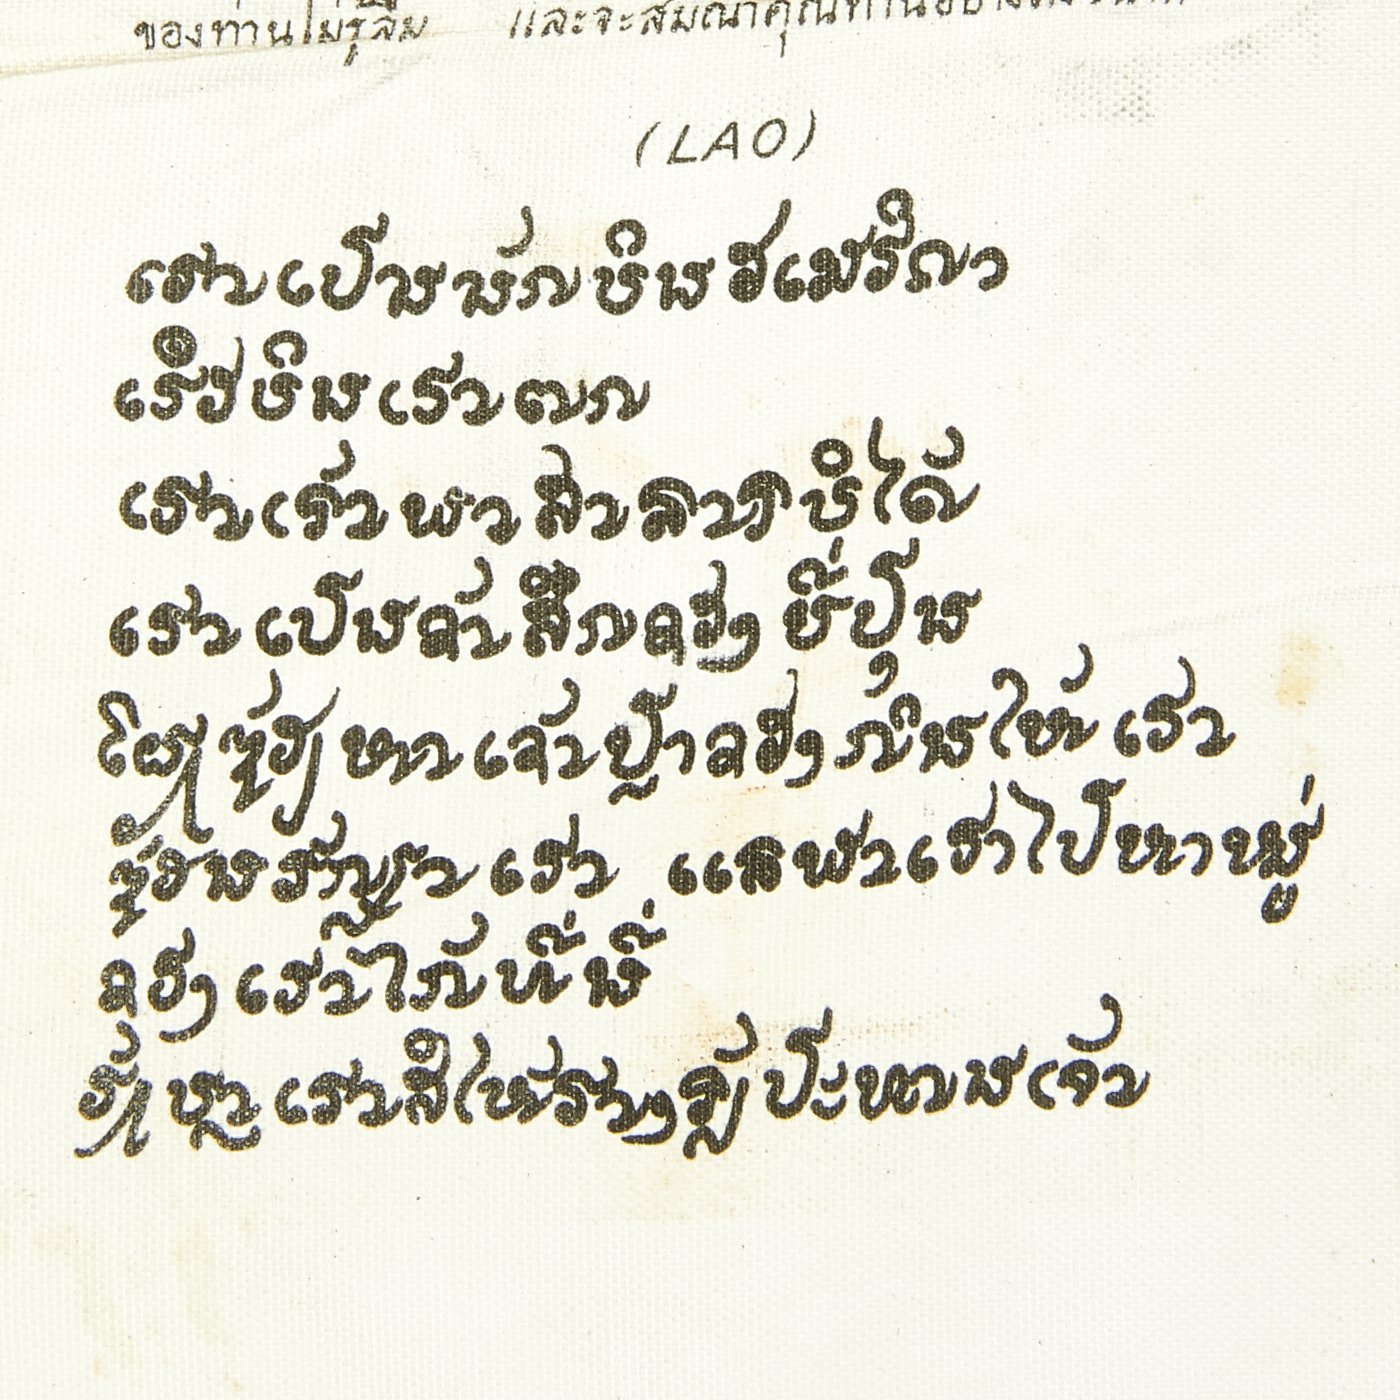 ของท่านไม่รู้ลืม และจะสมณาคุณท่านอย่าง
(LAO)
ເຮາ ເປັນ ນັກ ບິນ ອເມຣິກາ
ເຮືອບິນ ເຮາ ຕກ
ເຮາ ເວົ້າ ພາສາ ລາວ ບໍ ໄດ້
ເຮາ ເປັນ ຂ້າ ສຶກ ຂອງ ຍີ່ປຸ່ນ
ຊ່ອຍ ຫາ ເຂົ້າ ປາ ຂອງ ກິນ ໃຫ້ ເຮາ
ຊ້ອນ ຮັກສາ ເຮາ ແລ ພາ ເຮາ ໄປ ຫາ ໝູ່
ຂອງ ເຮາ ໄກ້ ທີ່ ນີ້
ເຮາ ສິ ໃຫ້ ຮາງວັນ ປະທານ ເຈົ້າ